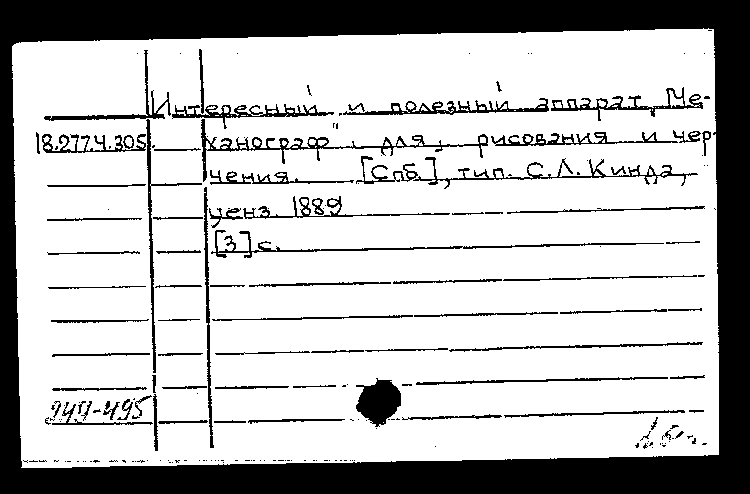 Интересный и полезный аппарат „Ме-
18.277.4.305. ханограф" для рисования и чер-
чения. [Спб.], тип. С.Л. Кинда,
ценз. 1889
[3] с.
949-495